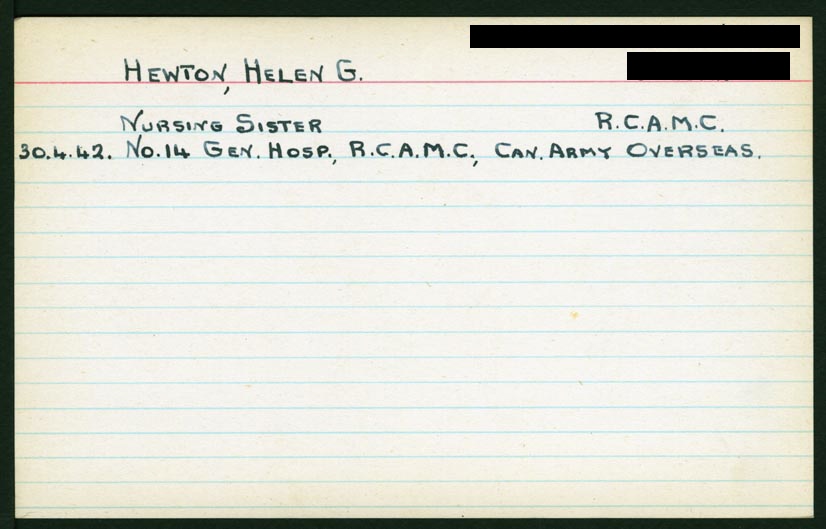 HEWTON, HELEN G.
NURSING SISTER R.C.A.M.C.
30.4.42. NO.14 GEN. HOSP., R.C.A.M.C., CAN. ARMY OVERSEAS.